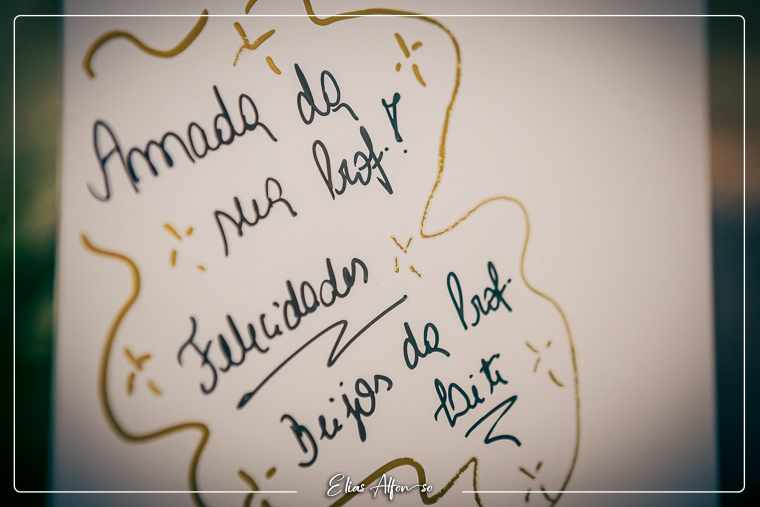 Amada da
sua Prof.!
Felicidades
Beijos da Prof.
Diti
Elias Alfonso